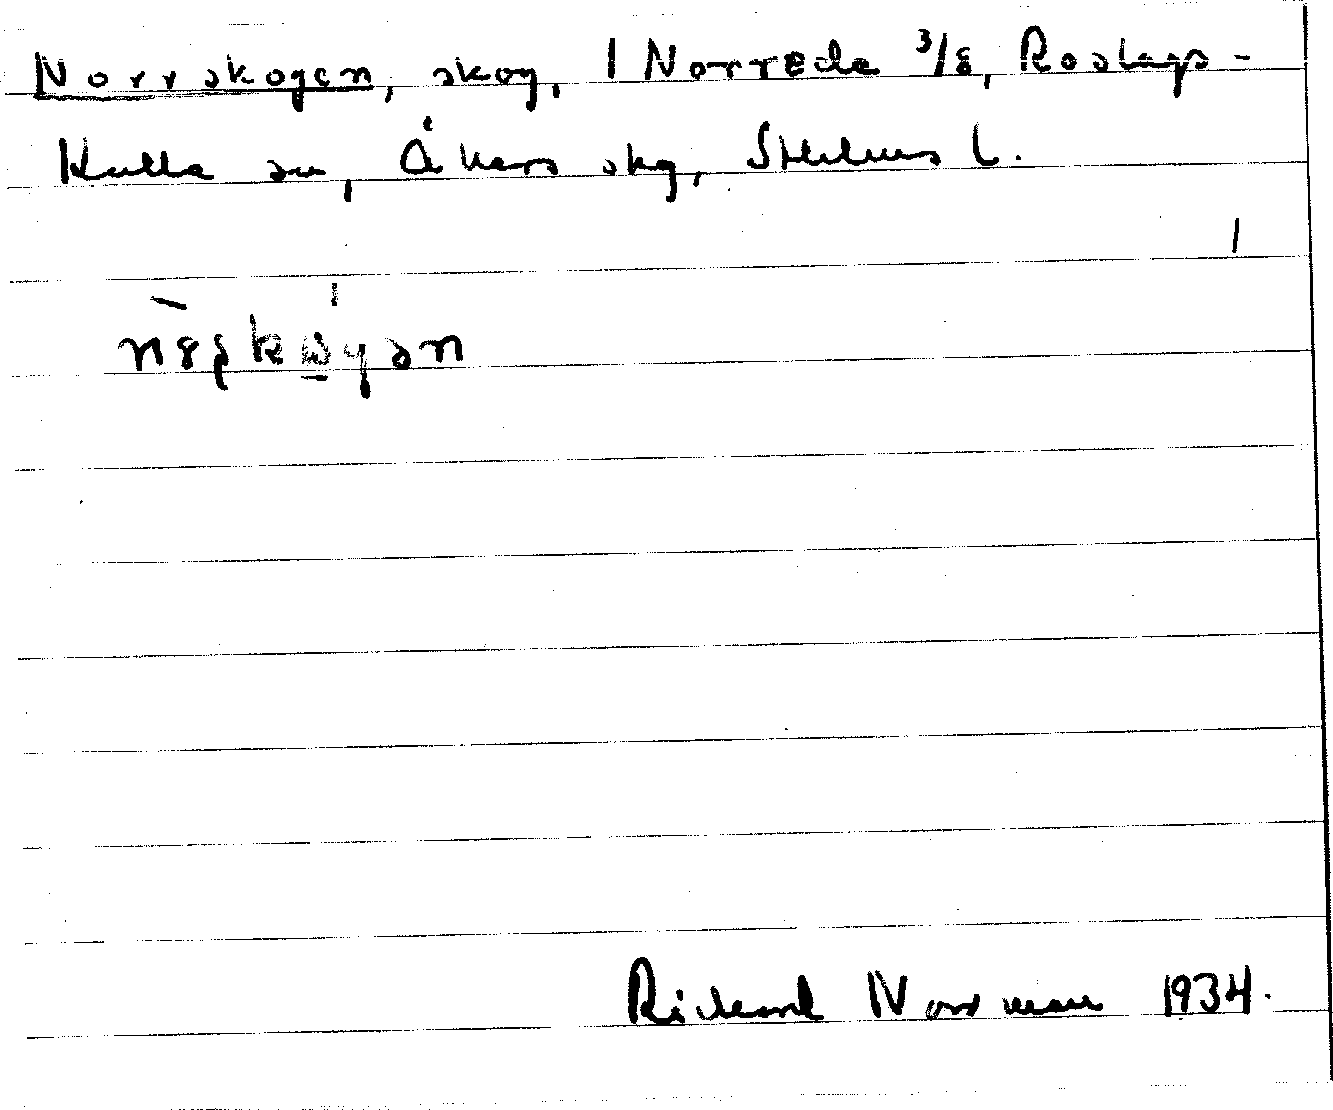 Norrskogen, skog, 1 Norreda 3/8, Roslags-
Kulla sn, Åkers skg, Sthlms l.
1
Richard Norrman 1934.